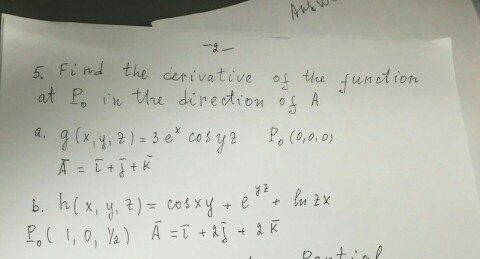 Answ
-2-
5. Find the derivative of the function
at P₀ in the direction of A
a. g(x,y,z) = 3eˣ cos yz P₀(0,0,0)
Ā = ī + j̄ + k̄
b. h(x, y, z) = cos xy + e^yz + ln zx
P₀(1, 0, ½) Ā = ī + 2j̄ + 2k̄